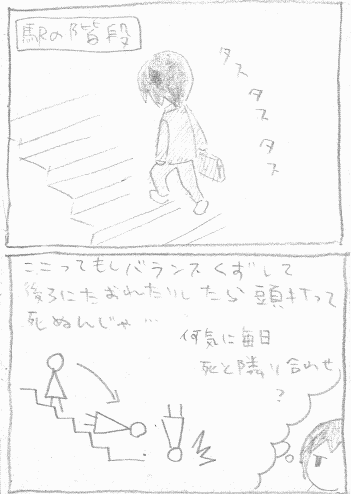 駅の階段
タス
タス
タス
ここってもしバランスくずして
後ろにたおれたりしたら頭打って
死ぬんじゃ…
何気に毎日
死と隣り合わせ
?